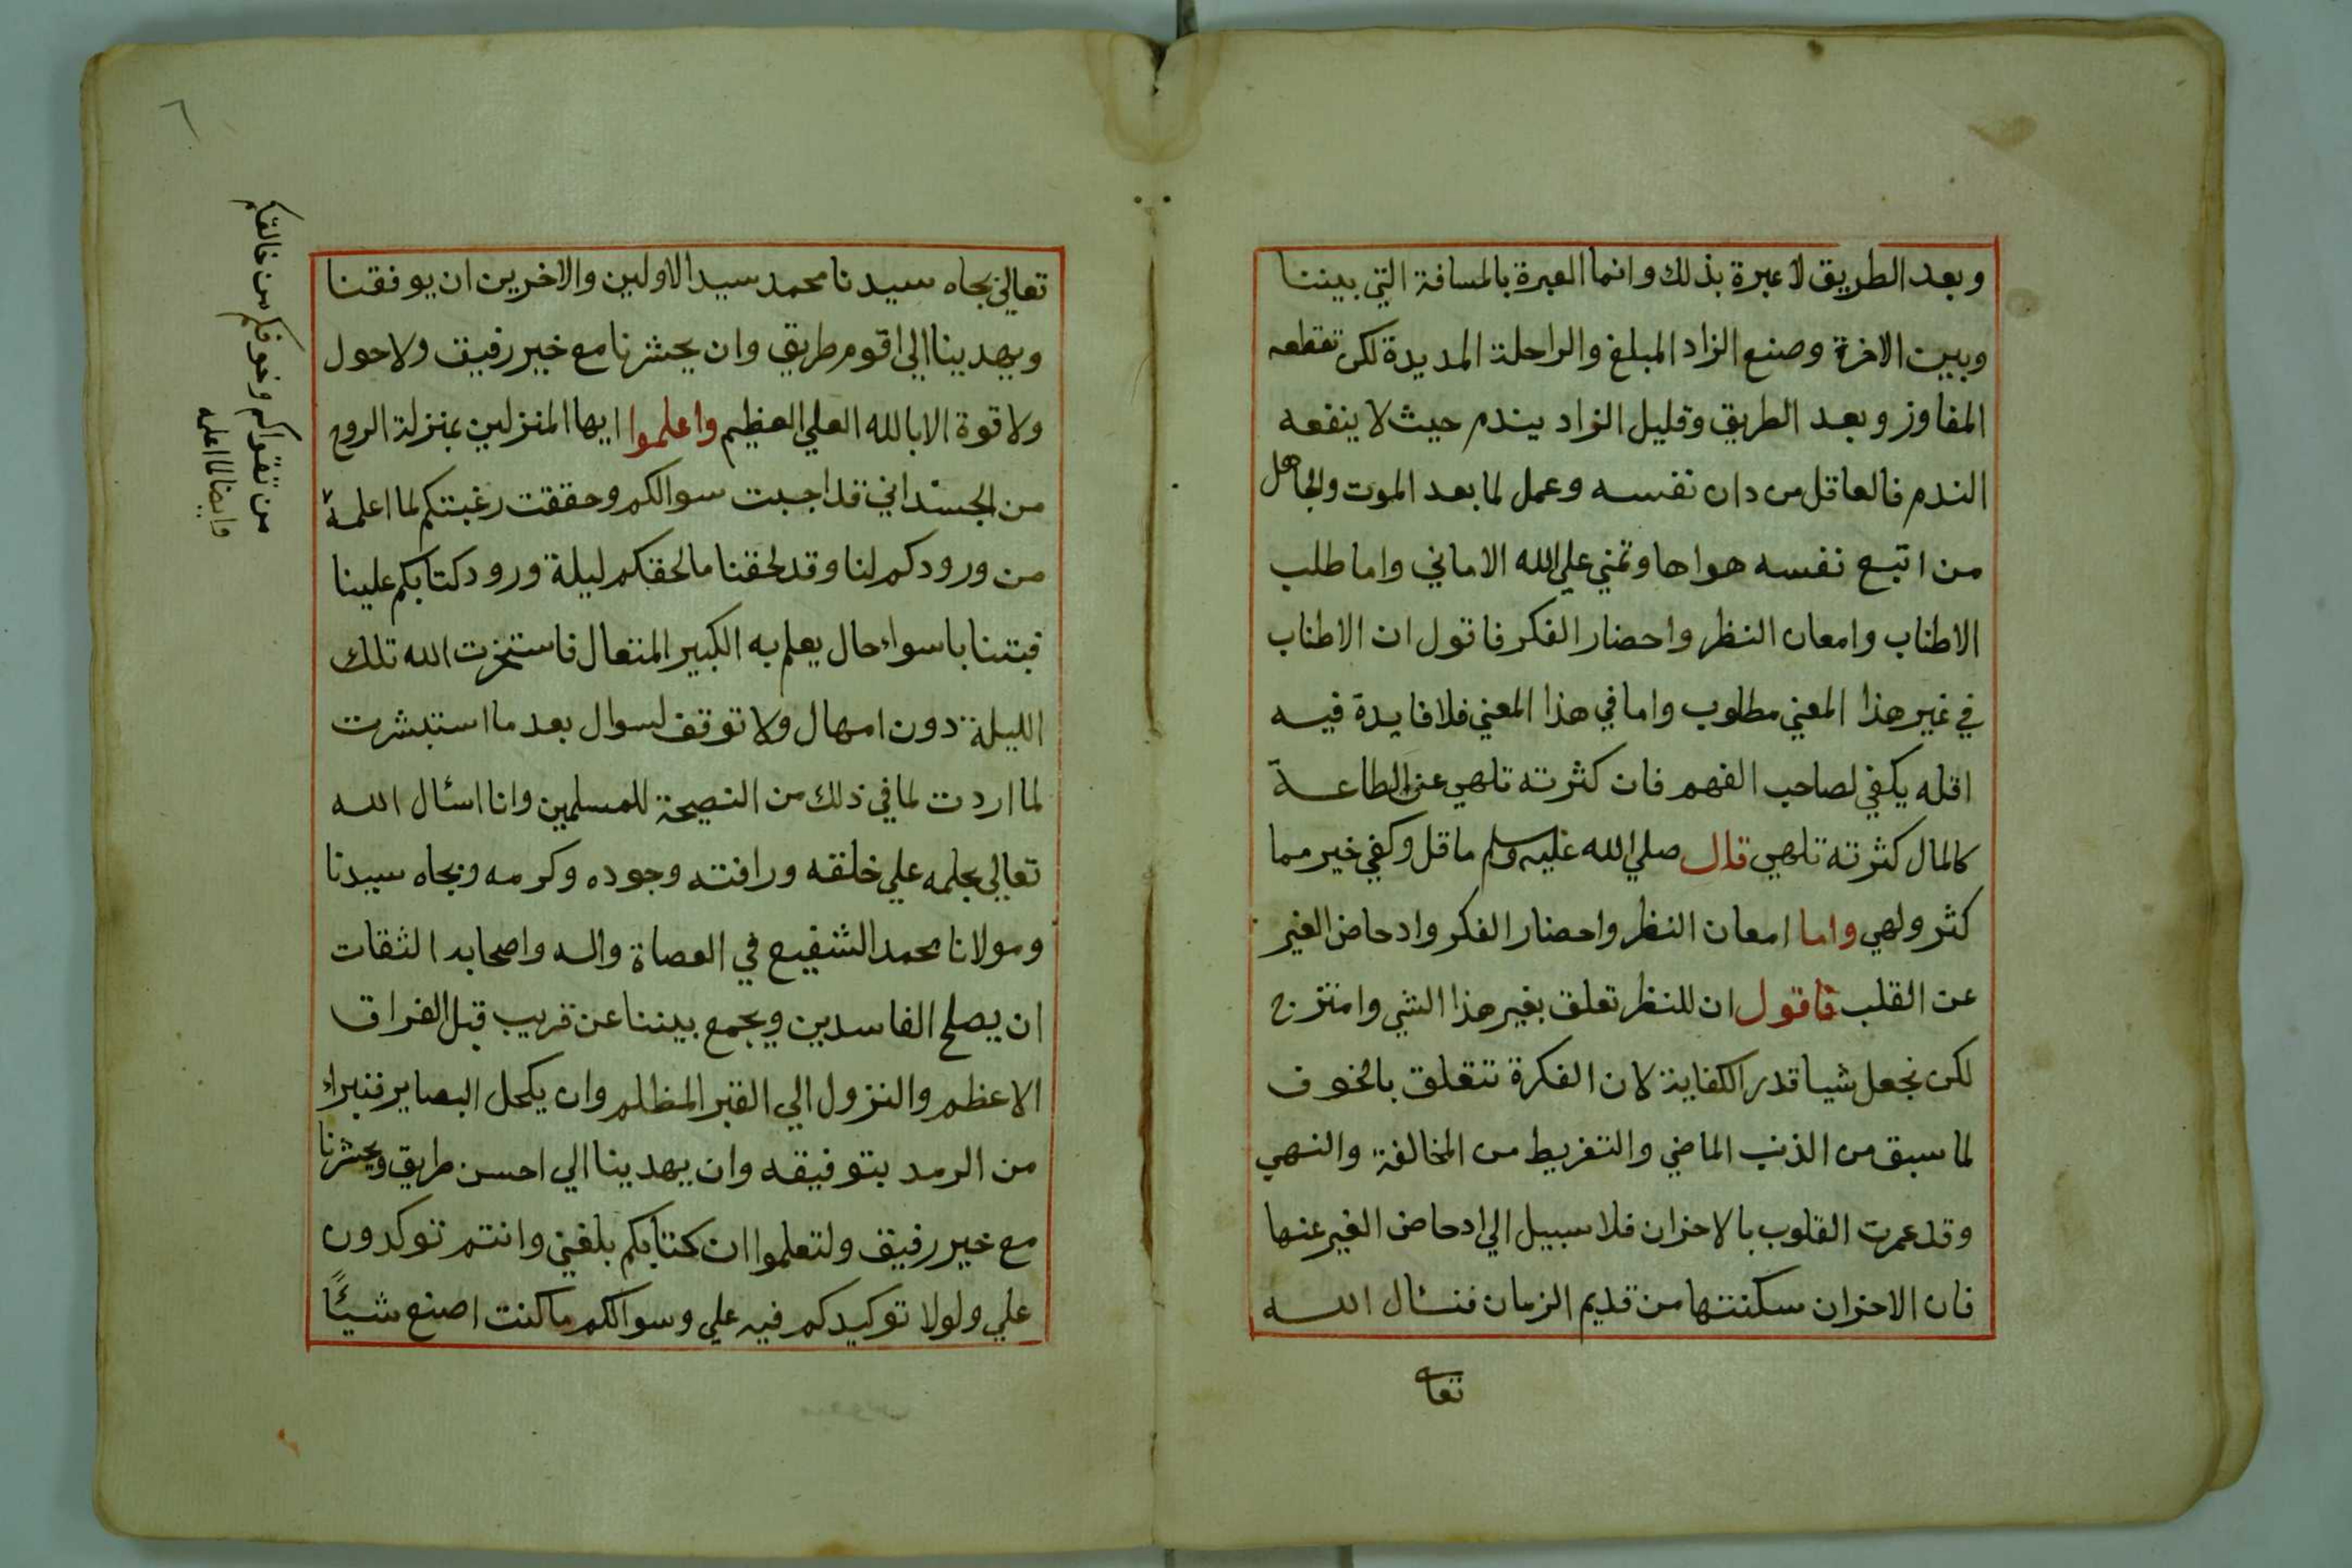 وبعد الطريق لا عبرة بذلك وانما العبرة بالمسافة التي بيننا
وبين الاخرة وصنع الزاد المبلغ والراحلة المديدة لكى تقطعه
المفاوز وبعد الطريق وقليل الزاد يندم حيث لا ينفعه
الندم فالعاقل من دان نفسه وعمل لما بعد الموت والجاهل
من اتبع نفسه هواها وتمني علي الله الاماني واما طلب
الاطناب وامعان النظر واحضار الفكر فاقول ان الاطناب
في غير هذا المعني مطلوب واما في هذا المعني فلا فايدة فيه
اقله يكفي لصاحب الفهم فان كثرته تلهي عن الطاعة
كالمال كثرته تلهي قال صلي الله عليه وسلم ما قل وكفي خير مما
كثر ولهي واما امعان النظر واحضار الفكر وادحاض الغير
عن القلب فاقول ان للنظر تعلق بغير هذا الشي وامتزج
لكن نجعل شيا قدر الكفاية لان الفكرة تتعلق بالخوف
لما سبق من الذنب الماضي والتفريط من المخالفة والنهي
وقد عمرت القلوب بالاحزان فلا سبيل الي ادحاض الغير عنها
فان الاحزان سكنتها من قديم الزمان فنسئال الله
تعا
٦
تعالي بجاه سيدنا محمد سيد الاولين والاخرين ان يوفقنا
ويهدينا الي اقوم طريق وان يحشرنا مع خير رفيق ولا حول
ولا قوة الا بالله العلي العظيم واعلموا ايها المنزلين بمنزلة الروح
من الجسد اني قد اجبت سوالكم وحققت رغبتكم لما اعلمه
من ورودكم لنا وقد لحقنا ما لحقكم ليلة ورود كتابكم علينا
فبتنا باسواء حال يعلم به الكبير المتعال فاستخرت الله تلك
الليلة دون امهال ولا توقف لسوال بعد ما استبشرت
لما اردت لما في ذلك من النصيحة للمسلمين وانا اسئال الله
تعالي بحلمه علي خلقه ورافته وجوده وكرمه وبجاه سيدنا
ومولانا محمد الشفيع في العصاة واله واصحابه الثقات
ان يصلح الفاسدين ويجمع بيننا عن قريب قبل الفراق
الاعظم والنزول الي القبر المظلم وان يكحل البصاير فتبراء
من الرمد بتوفيقه وان يهدينا الي احسن طريق ويحشرنا
مع خير رفيق ولتعلموا ان كتابكم بلغني وانتم توكدون
علي ولولا توكيدكم فيه علي وسوالكم ما كنت اصنع شيئاً
من تقواكم وخوفكم من خالقكم
وايضا لما اعلمه